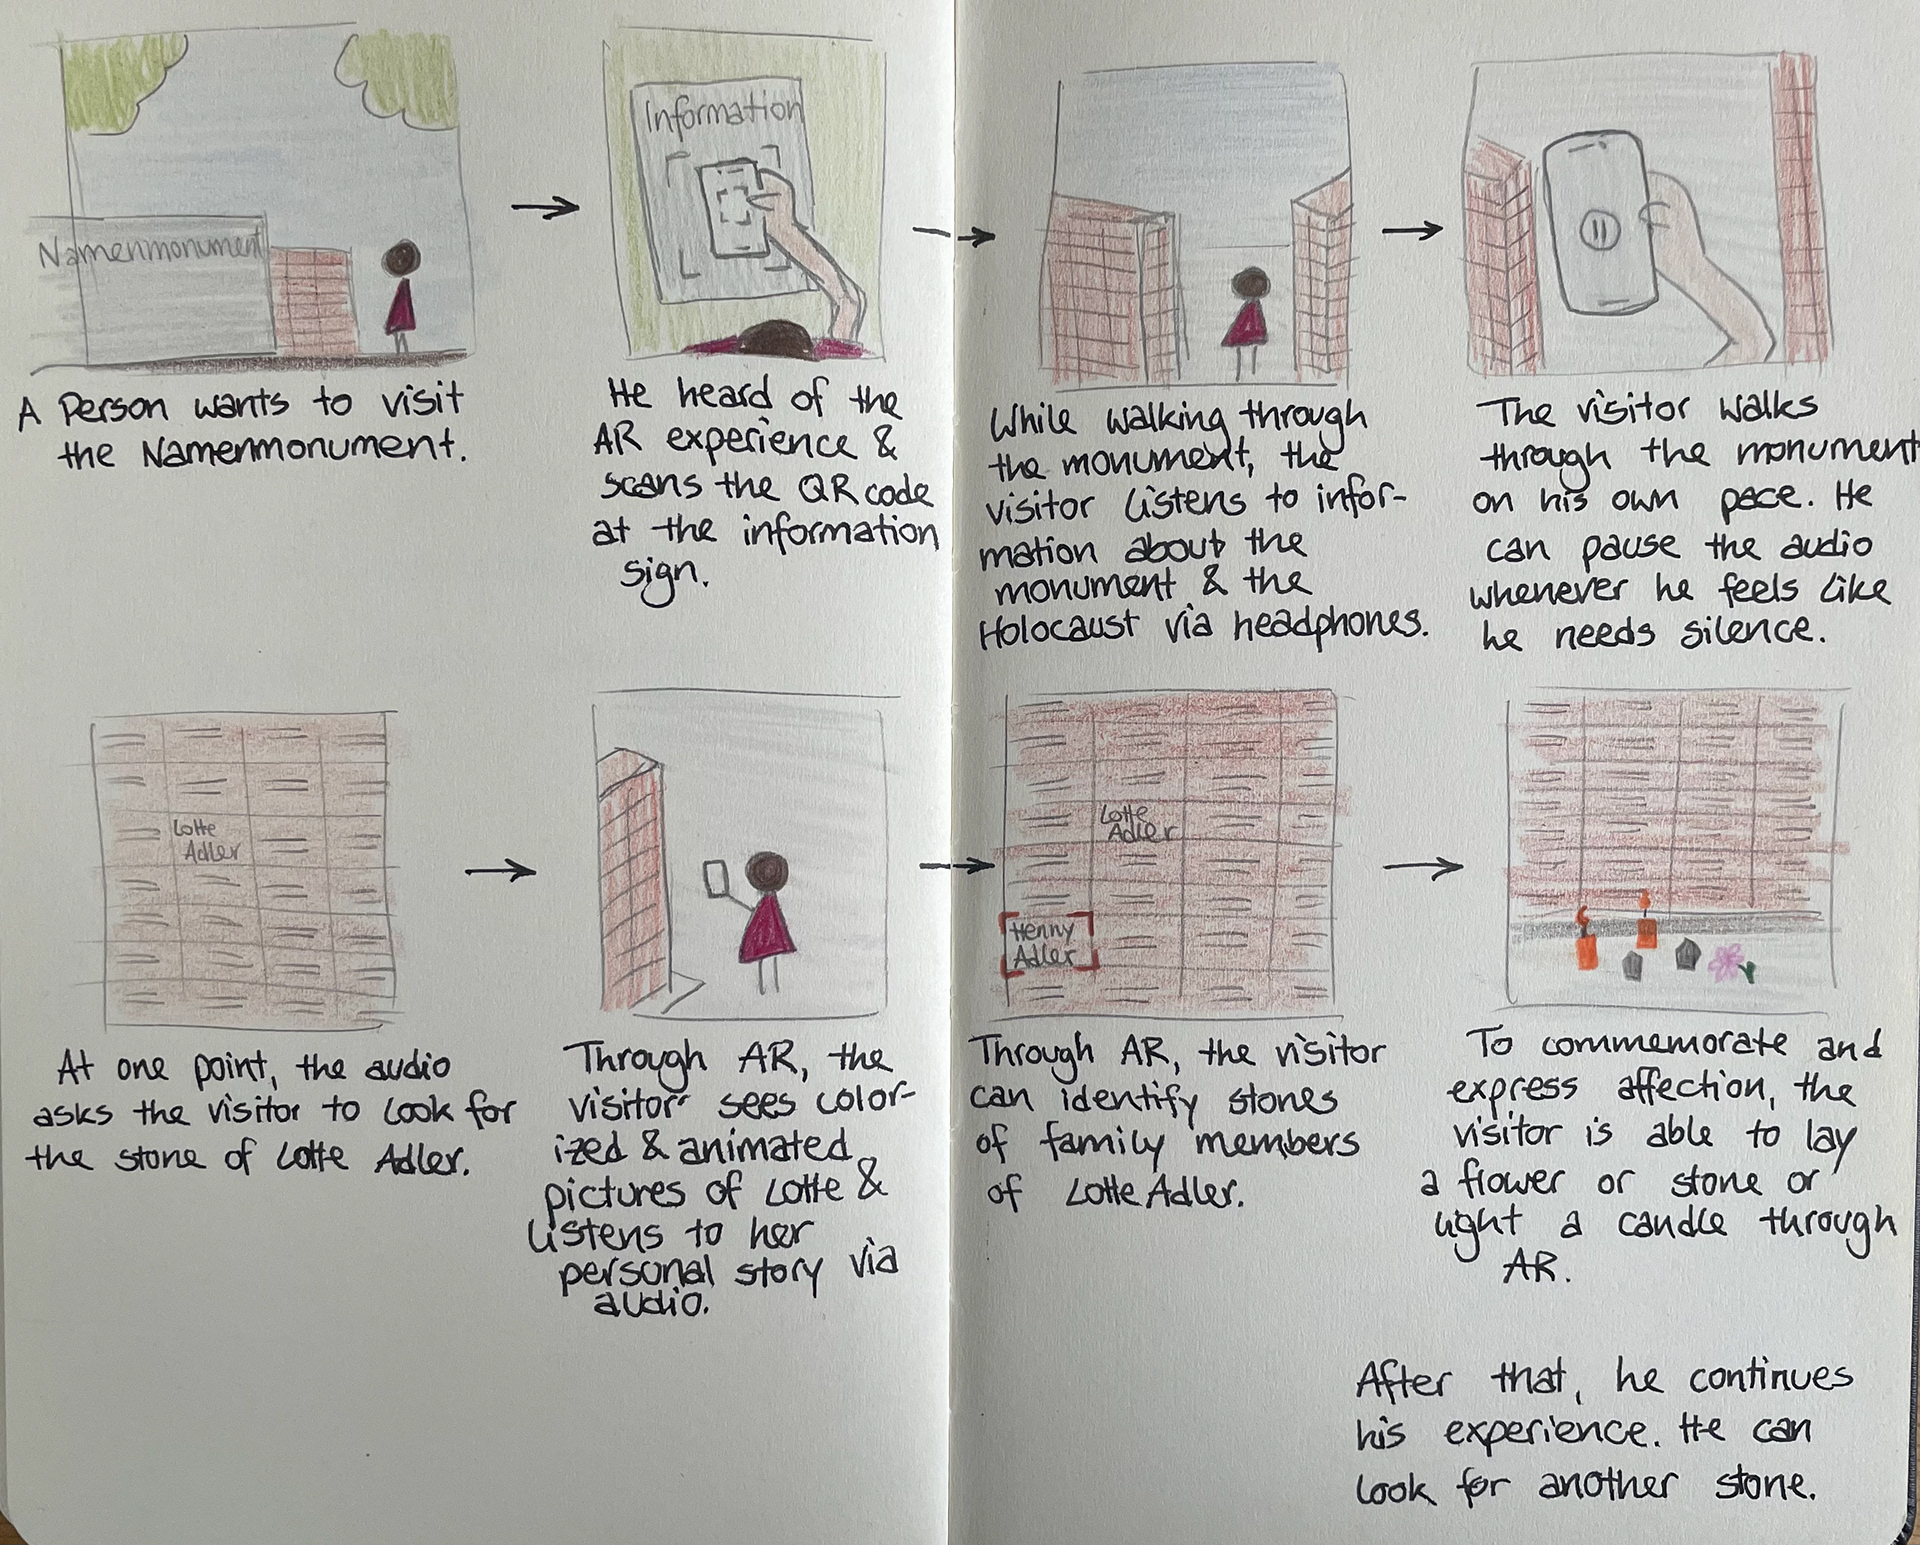 Namenmonument
A Person wants to visit
the Namenmonument.
Information
He heard of the
AR experience &
scans the QR code
at the information
sign.
While walking through
the monument, the
visitor listens to infor-
mation about the
monument & the
Holocaust via headphones.
The visitor walks
through the monument
on his own pace. He
can pause the audio
whenever he feels like
he needs silence.
Lotte
Adler
At one point, the audio
asks the visitor to look for
the stone of Lotte Adler.
Through AR, the
visitor sees color-
ized & animated
pictures of Lotte &
Listens to her
personal story via
audio.
Lotte
Adler
Henny
Adler
Through AR, the visitor
can identify stones
of family members
of Lotte Adler.
To commemorate and
express affection, the
visitor is able to lay
a flower or stone or
light a candle through
AR.
After that, he continues
his experience. He can
look for another stone.